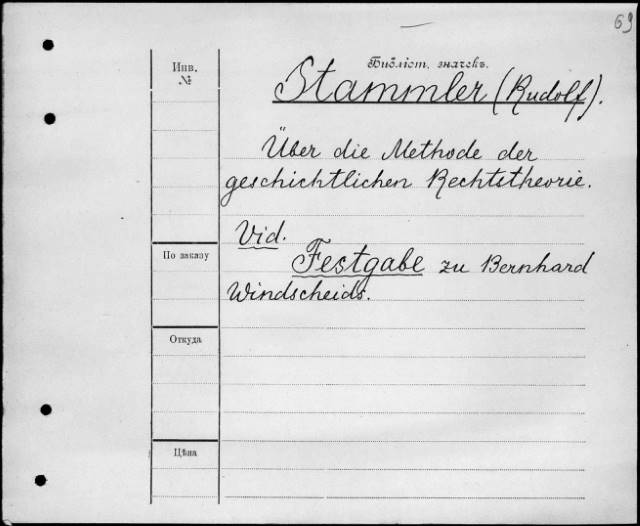 69
Бібліот. значекъ.
Инв.
№
Stammler (Rudolf).
Über die Methode der
geschichtlichen Rechtstheorie.
Vid.
По заказу
Festgabe zu Bernhard
Windscheids.
Откуда
Цѣна